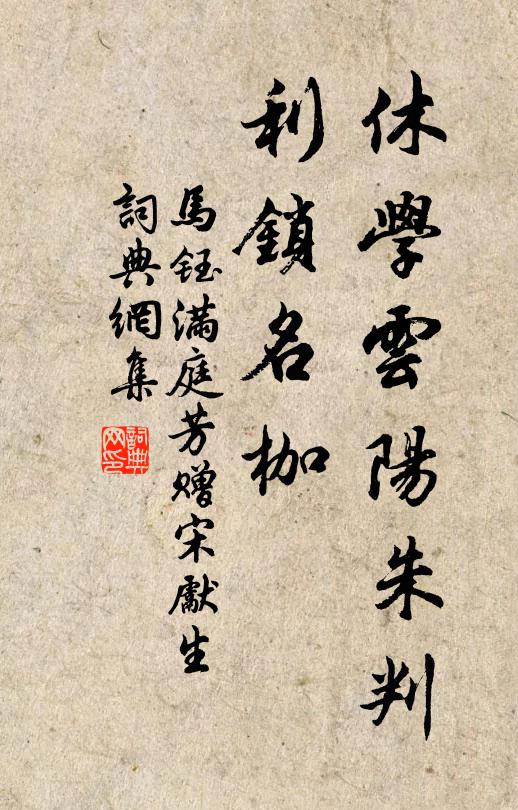 休學雲陽朱判
利鎖名枷
馬鈺满庭芳赠宋獻生
詞典網集
詞典网印